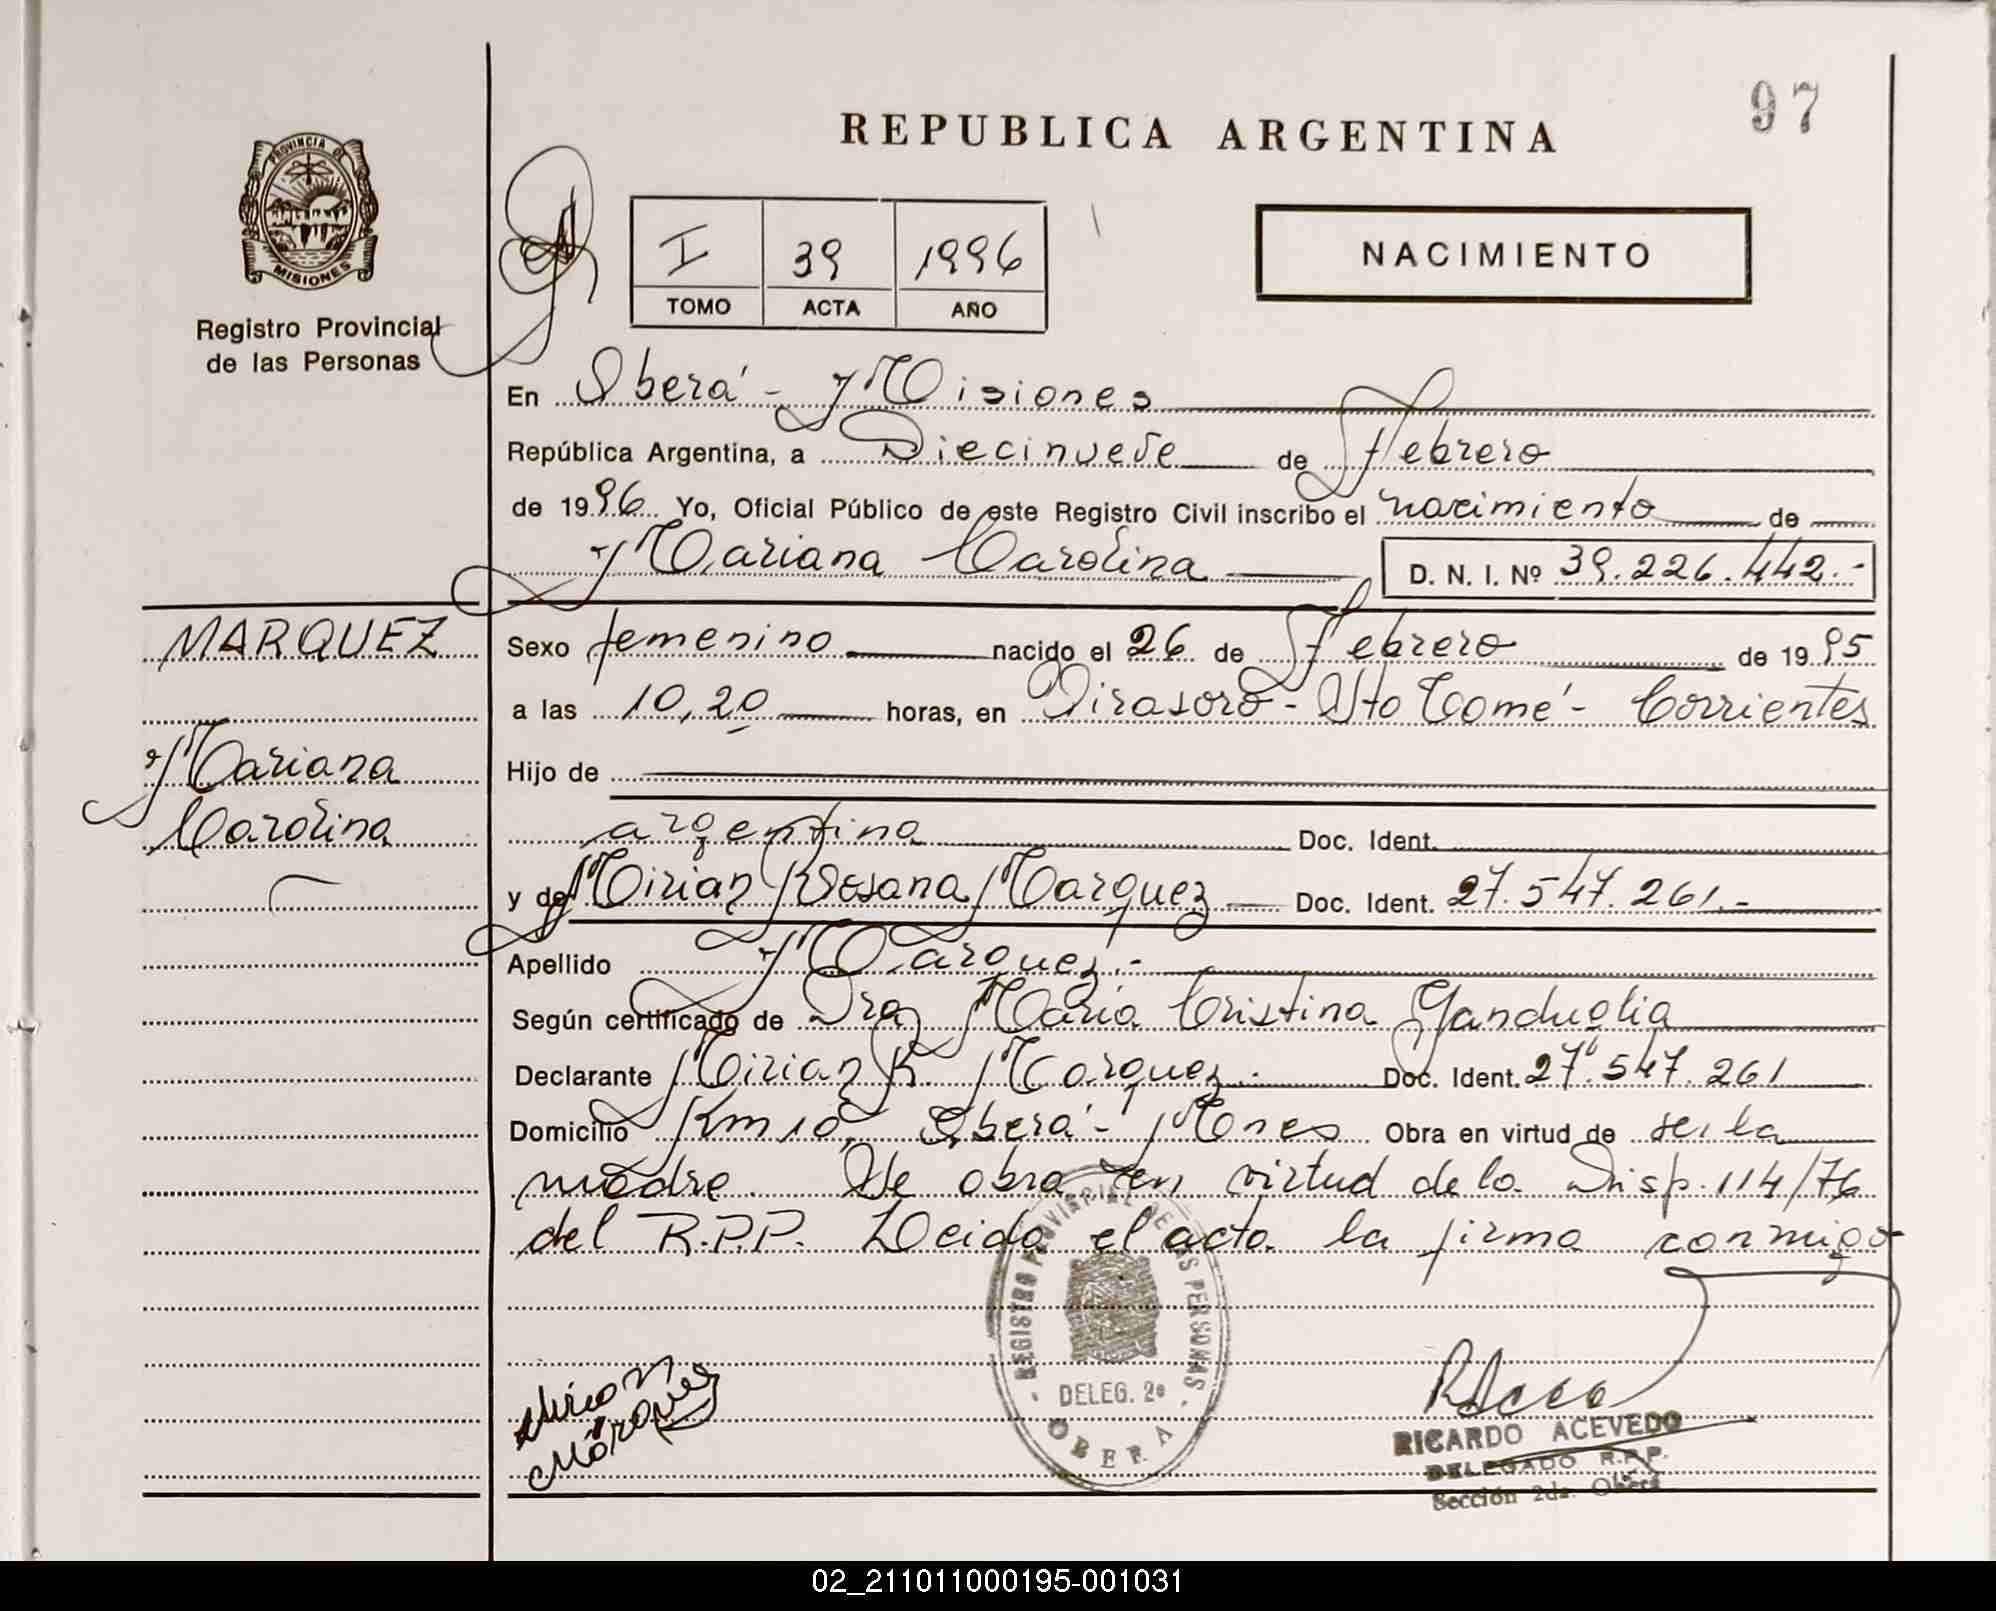 97
REPUBLICA ARGENTINA
PROVINCIA DE
MISIONES
Registro Provincial
de las Personas
I 39 1996
TOMO ACTA AÑO
NACIMIENTO
En Oberá - Misiones
República Argentina, a Diecinueve de Febrero
de 1996 Yo, Oficial Público de este Registro Civil inscribo el nacimiento de
Mariana Carolina D. N. I. Nº 39.226.442.-
MARQUEZ
Mariana
Carolina
Sexo femenino nacido el 26 de Febrero de 1995
a las 10,20 horas, en Virasoro - Sto Tomé - Corrientes
Hijo de
argentina Doc. Ident.
y de Mirian Rosana Marquez Doc. Ident. 27.547.261.-
Apellido Marquez.-
Según certificado de Dra María Cristina Ganduglia
Declarante Mirian R. Marquez.- Doc. Ident. 27.547.261
Domicilio Km 10, Oberá - Mnes Obra en virtud de ser la
madre. Se obra en virtud de la Disp. 114/76
del R.P.P. Leida el acta la firma conmigo
Mirian
Márquez
REGISTRO PROVINCIAL DE LAS PERSONAS
DELEG. 2ª
OBERA
RICARDO ACEVEDO
DELEGADO R.P.P.
Sección 2da. Oberá
02_211011000195-001031